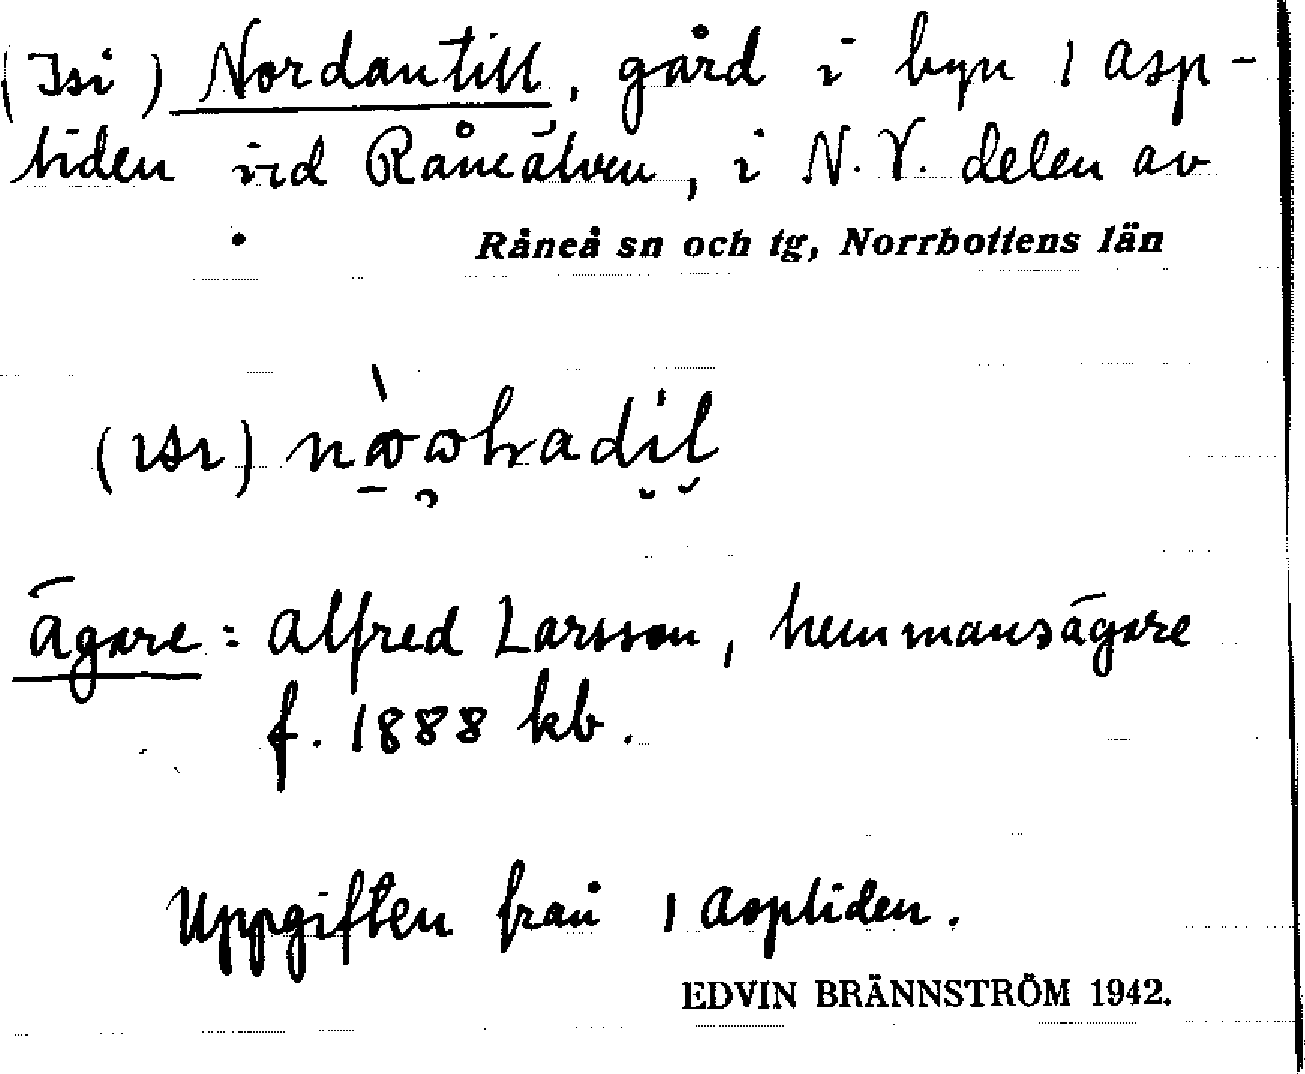 (Isi) Nordantill, gård i byn 1 Asp-
liden vid Råneälven, i N.V. delen av
Råneå sn och tg, Norrbottens län
(ısı)
Ägare: Alfred Larsson, hemmansägare
f. 1888 kb.
Uppgiften från 1 Aspliden.
EDVIN BRÄNNSTRÖM 1942.